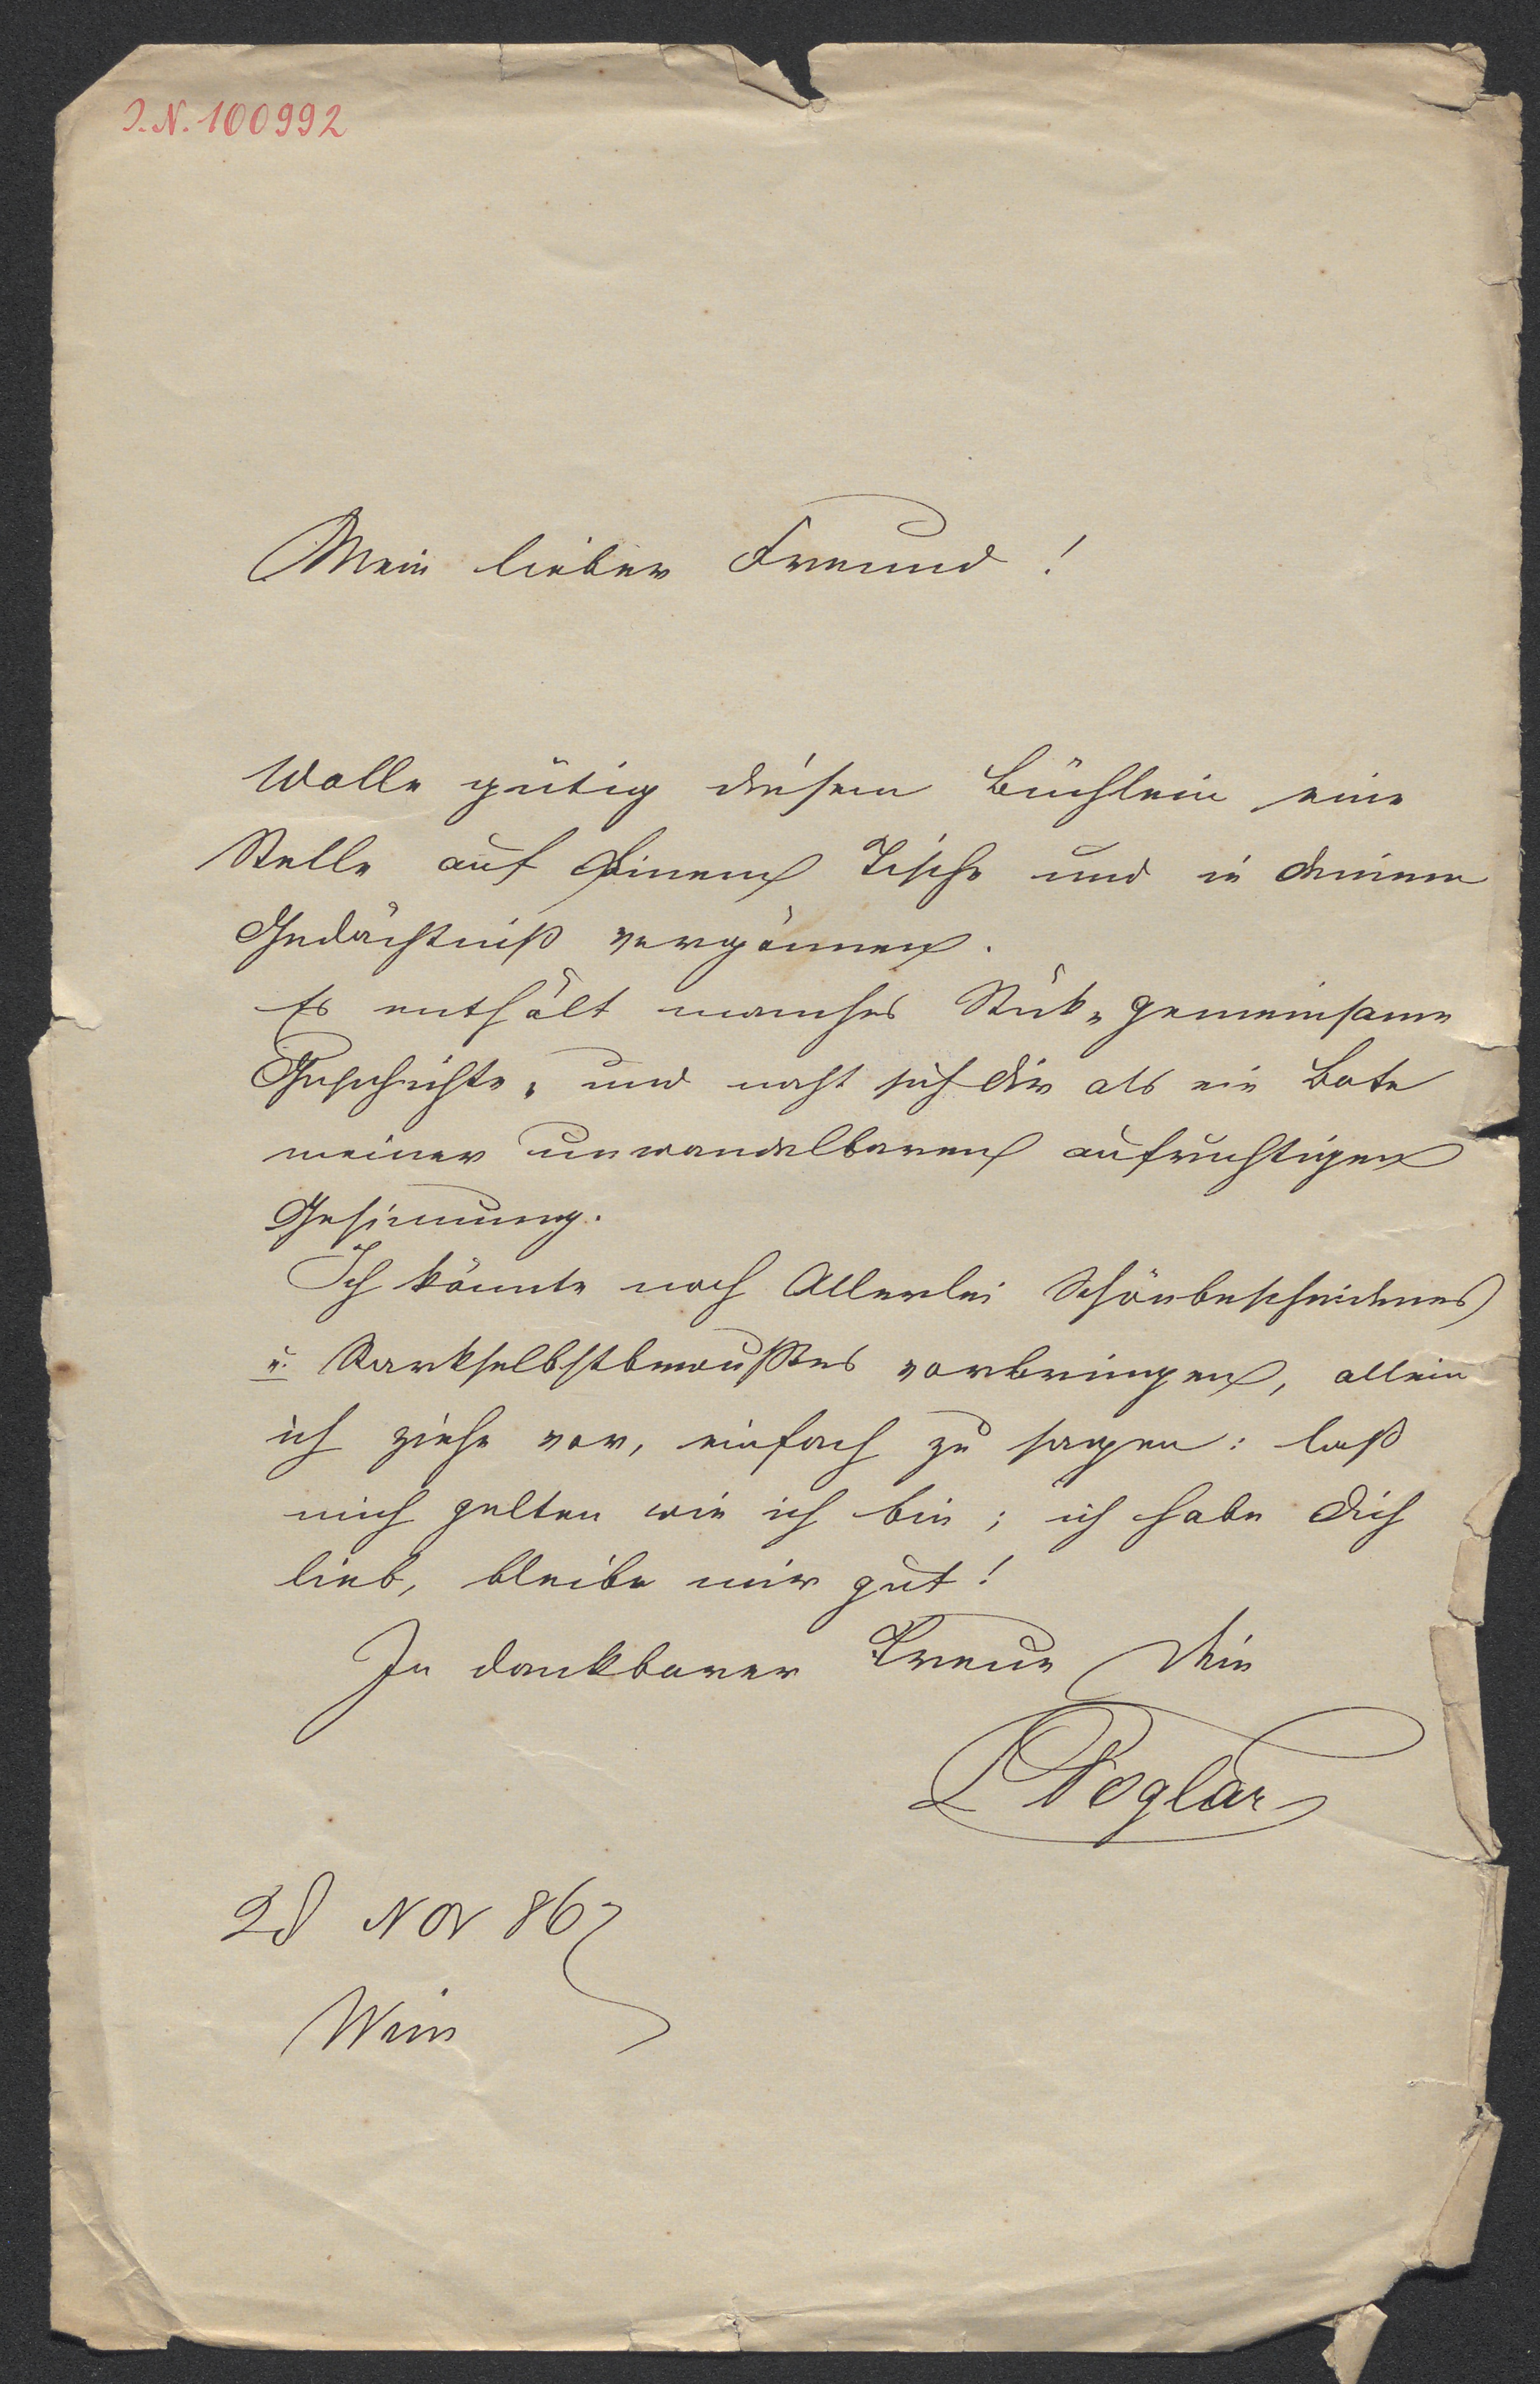 I.N. 100992
Mein lieber Freund!
Wolle gütig diesem Büchlein eine
Stelle auf Deinem Tische und in deinem
Gedächtniß vergönnen.
Es enthält manches Stük „gemeinsame
Geschichte“ und naht sich dir als ein Bote
meiner unwandelbaren aufrichtigen
Gesinnung.
Ich könnte noch Allerlei Schönbescheidenes
u. Starkselbstbewußtes vorbringen, allein
ich ziehe vor, einfach zu sagen: laß
mich gelten wie ich bin; ich habe Dich
lieb, bleibe mir gut!
In dankbarer Treue Dein
L Foglar
28 Nov 867
Wien